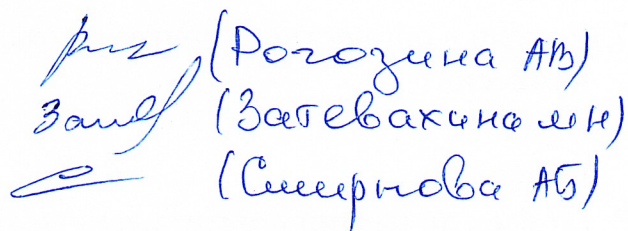 (Рогозина АВ)
(Затевахина МН)
(Смирнова АБ)